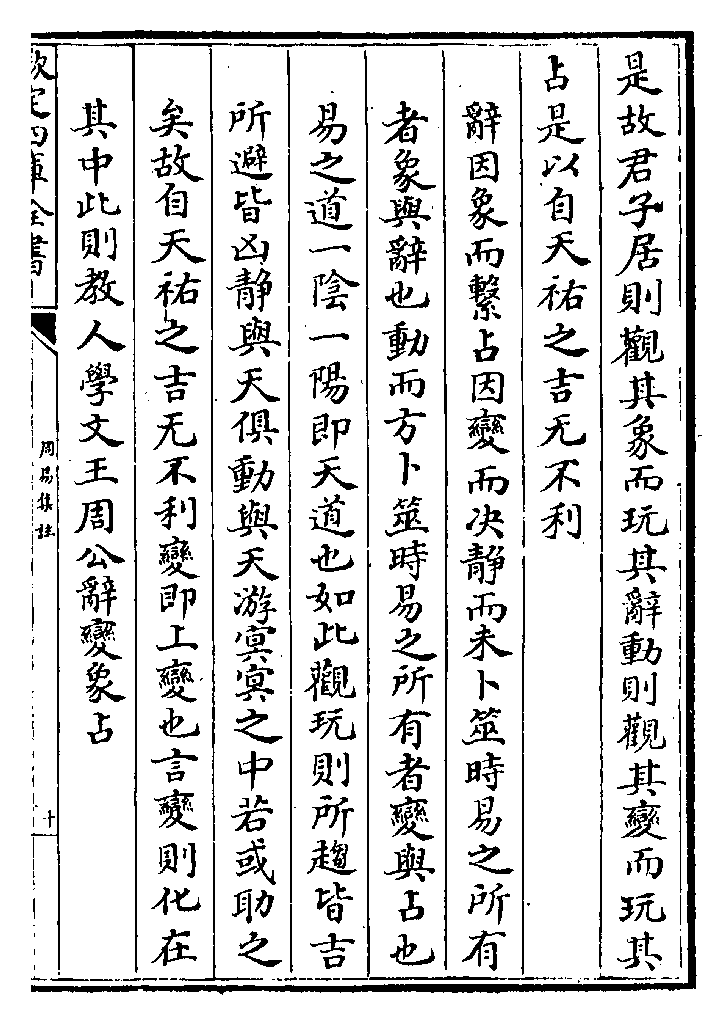 是故君子居則觀其象而玩其辭動則觀其變而玩其
占是以自天祐之吉无不利
辭因象而繫占因變而决靜而未卜筮時易之所有
者象與辭也動而方卜筮時易之所有者變與占也
易之道一陰一陽即天道也如此觀玩則所趨皆吉
所避皆凶靜與天俱動與天游冥冥之中若或助之
矣故自天祐之吉无不利變即上變也言變則化在
其中此則教人學文王周公辭變象占
欽定四庫全書
周易集註
十